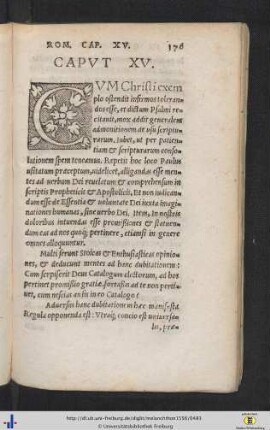 ROM. CAP. XV. 176
CAPVT XV.
CVM Christi exem
plo ostendit infirmos toleran
dos esse, et dictum Psalmi re
citauit, mox addit generalem
admonitionem de usu scriptu
rarum. Iubet, ut per patien
tiam & scripturarum conso
lationem spem teneamus. Repetit hoc loco Paulus
usitatum præceptum, uidelicet, alligandas esse men
tes ad uerbum Dei reuelatum & comprehensum in
scriptis Propheticis & Apostolicis, Et non iudican
dum esse de Essentia & uoluntate Dei iuxta imagi
nationes humanas, sine uerbo Dei. Item, in nostris
doloribus intuendas esse promissiones & statuen
dum eas ad nos quoque pertinere, etiamsi in genere
omnes alloquuntur.
Multi serunt Stoicas & Enthusiasticas opinio
nes, & deducunt mentes ad hanc dubitationem:
Cum scripserit Deus Catalogum electorum, ad hos
pertinet promissio gratiæ, fortassis ad te non perti
net, cum nescias an sis in eo Catalogo?
Aduersus hanc dubitationem hæc manifesta
Regula opponenda est: Vtraque concio est uniuersa
lis, præ-
http://dl.ub.uni-freiburg.de/diglit/melanchthon1556/0493
© Universitätsbibliothek Freiburg